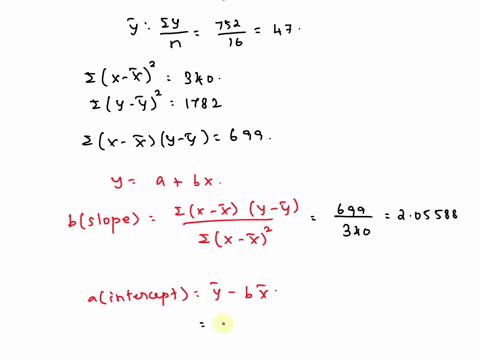 ȳ : Σy/n = 752/16 = 47.
Σ(x-x̄)² = 340.
Σ(y-ȳ)² = 1782
Σ(x-x̄)(y-ȳ) = 699.
y = a + bx.
b(slope) = Σ(x-x̄)(y-ȳ)/Σ(x-x̄)² = 699/340 = 2.05588
a(intercept) = ȳ - bx̄.
=